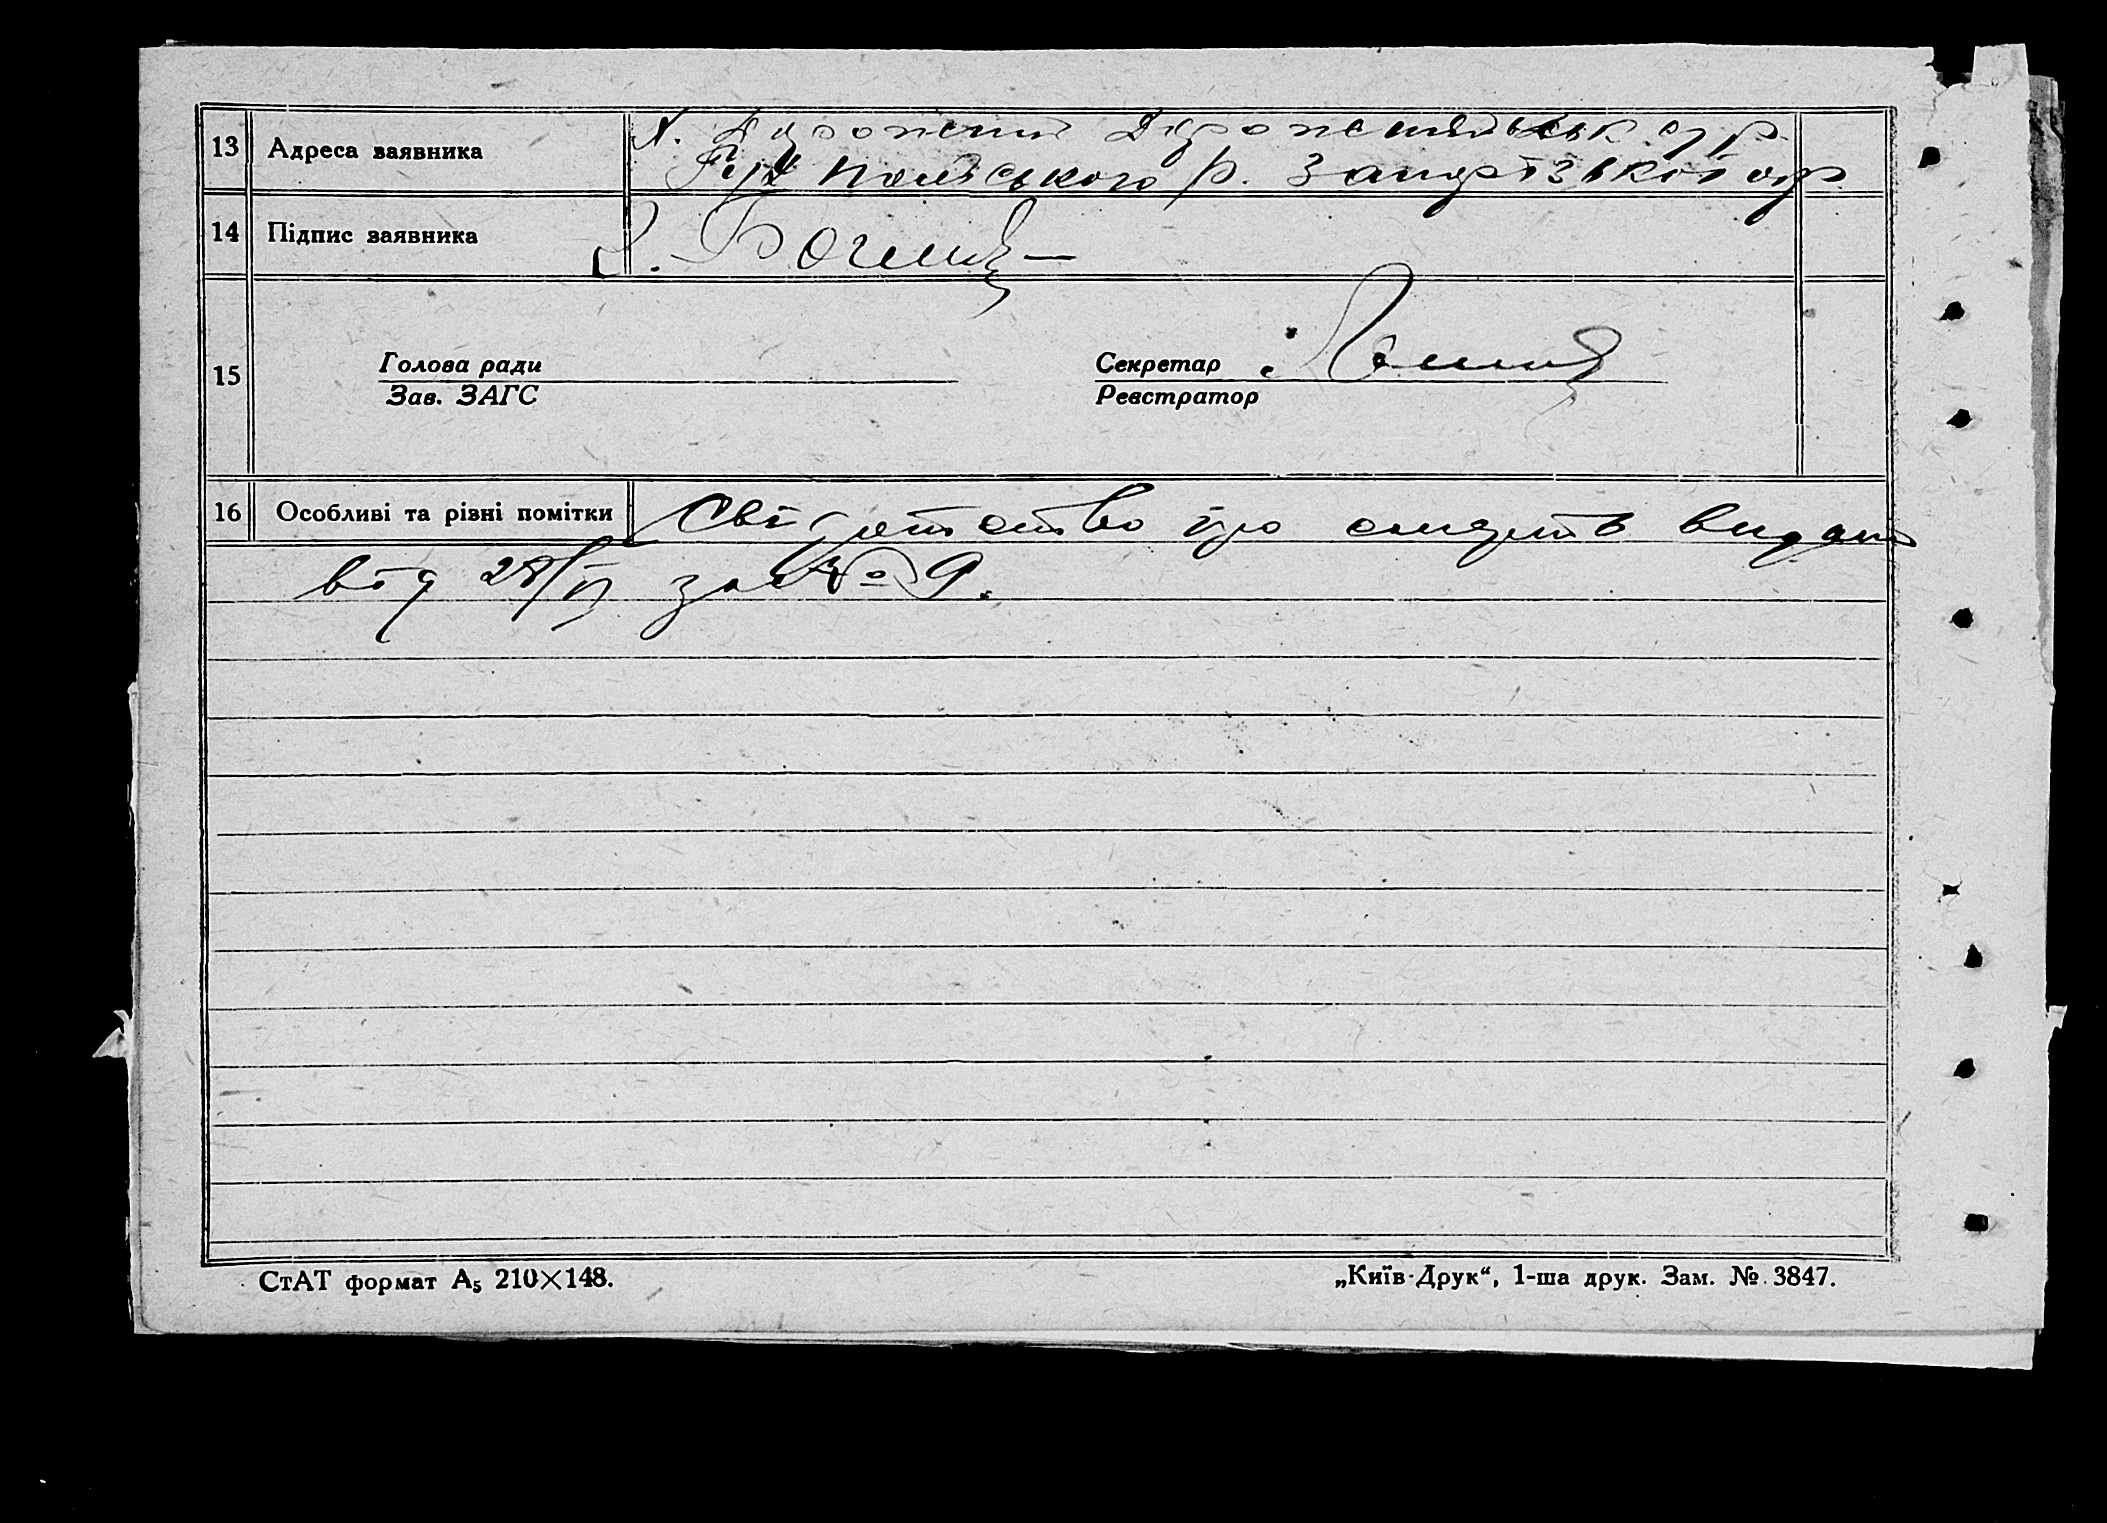 13 Адреса заявника х.
Гуляй Польського р. Запорізької обл.
14 Підпис заявника
15 Голова ради
Зав. ЗАГС
Секретар
Реєстратор
16 Особливі та різні помітки Свідотство про смерть видано
від 28/VI за № 9.
СтАТ формат А5 210×148.
„Київ-Друк“, 1-ша друк. Зам. № 3847.